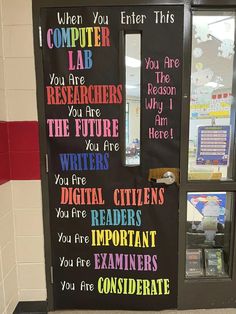 When You Enter This
COMPUTER
LAB
You Are
RESEARCHERS
You Are
THE FUTURE
You Are
WRITERS
You Are
DIGITAL CITIZENS
You Are READERS
You Are IMPORTANT
You Are EXAMINERS
You Are CONSIDERATE
You Are
The
Reason
Why I
Am
Here!